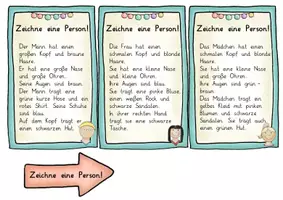 Zeichne eine Person!
Der Mann hat einen
großen Kopf und braune
Haare.
Er hat eine große Nase
und große Ohren.
Seine Augen sind braun.
Der Mann trägt eine
grüne kurze Hose und ein
rotes Shirt. Seine Schuhe
sind blau.
Auf dem Kopf trägt er
einen schwarzen Hut.
Zeichne eine Person!
Die Frau hat einen
schmalen Kopf und blonde
Haare.
Sie hat eine kleine Nase
und kleine Ohren.
Ihre Augen sind blau.
Sie trägt eine pinke Bluse,
einen weißen Rock und
schwarze Sandalen.
In ihrer rechten Hand
trägt sie eine schwarze
Tasche.
Zeichne eine Person!
Das Mädchen hat einen
schmalen Kopf und blonde
Haare.
Sie hat eine kleine Nase
und große Ohren.
Ihre Augen sind grün -
braun.
Das Mädchen trägt ein
gelbes Kleid mit pinken
Blumen und schwarze
Sandalen. Sie trägt auch
einen grünen Hut.
Zeichne eine Person!